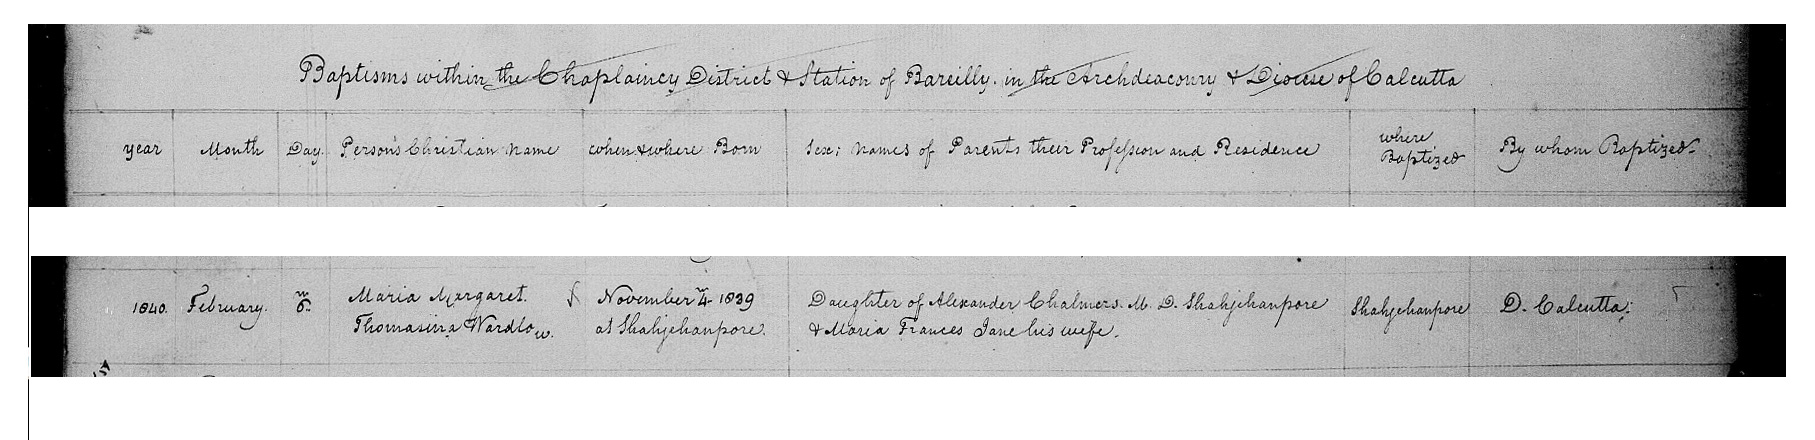 Baptisms within the Chaplaincy District & Station of Bareilly. in the Archdeaconry & Diocese of Calcutta
year Month Day. Person's Christian Name when & where Born Sex; Names of Parents their Profession and Residence where Baptized By whom Baptized
1840. February. 6th Maria Margaret. November 4th 1839 Daughter of Alexander Chalmers. M. D. Shahjehanpore Shahjehanpore D. Calcutta;
Thomasina Wardlow. at Shahjehanpore. & Maria Frances Jane his wife.